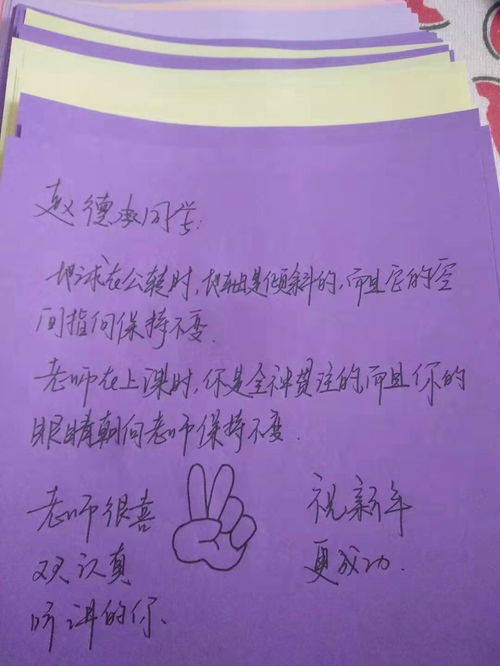 赵德承同学:
地球在公转时,地轴是倾斜的,而且它的空
间指向保持不变.
老师在上课时,你是全神贯注的,而且你的
眼睛朝向老师保持不变.
老师很喜
欢认真
听讲的你.
祝新年
更成功.